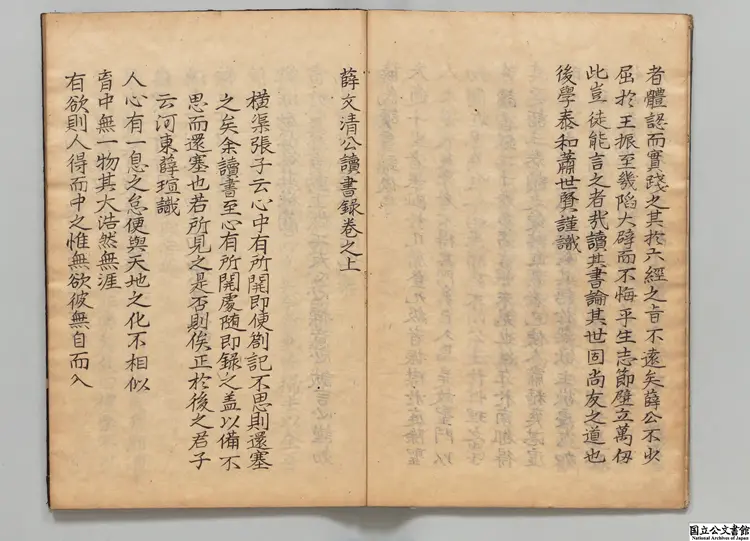 者體認而實踐之其於六經之旨不遠矣薛公不少
屈於王振至幾陷大辟而不悔平生志節壁立萬仞
此豈徒能言之者哉讀其書論其世固尚友之道也
後學泰和蕭世賢謹識
薛文清公讀書錄卷之上
橫渠張子云心中有所開即便劄記不思則還塞
之矣余讀書至心有所開處隨即錄之盖以備不
思而還塞也若所見之是否則俟正於後之君子
云河東薛瑄識
人心有一息之怠便與天地之化不相似
胷中無一物其大浩然無涯
有欲則人得而中之惟無欲彼無自而入
国立公文書館
National Archives of Japan